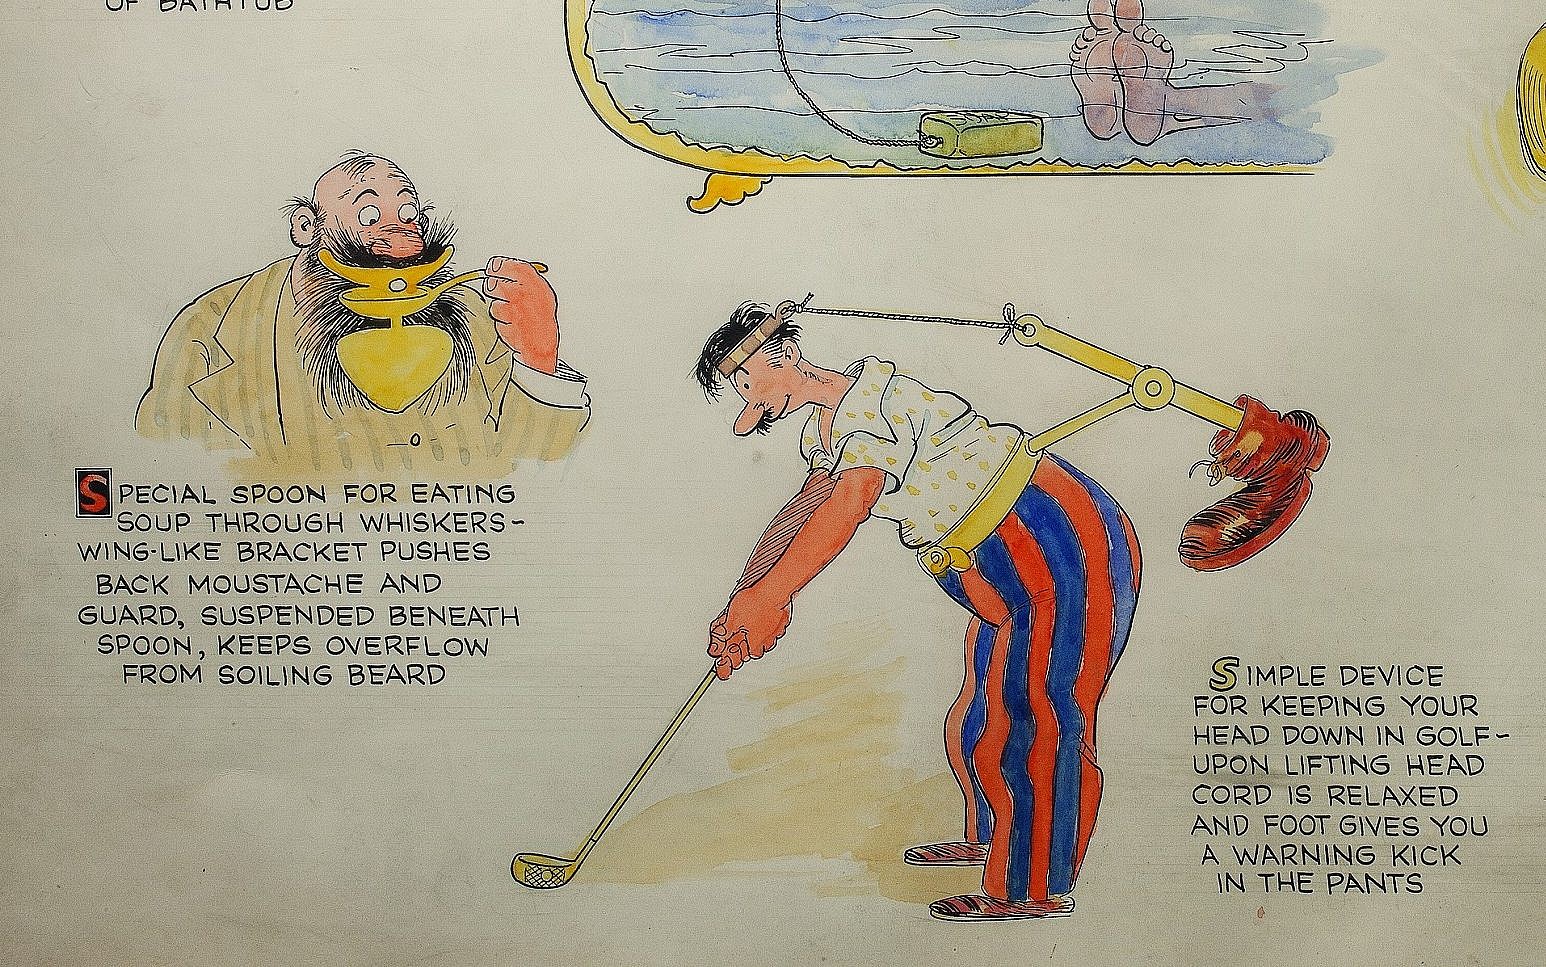 OF BATHTUB
SOAP
SPECIAL SPOON FOR EATING
SOUP THROUGH WHISKERS-
WING-LIKE BRACKET PUSHES
BACK MOUSTACHE AND
GUARD, SUSPENDED BENEATH
SPOON, KEEPS OVERFLOW
FROM SOILING BEARD
SIMPLE DEVICE
FOR KEEPING YOUR
HEAD DOWN IN GOLF-
UPON LIFTING HEAD
CORD IS RELAXED
AND FOOT GIVES YOU
A WARNING KICK
IN THE PANTS